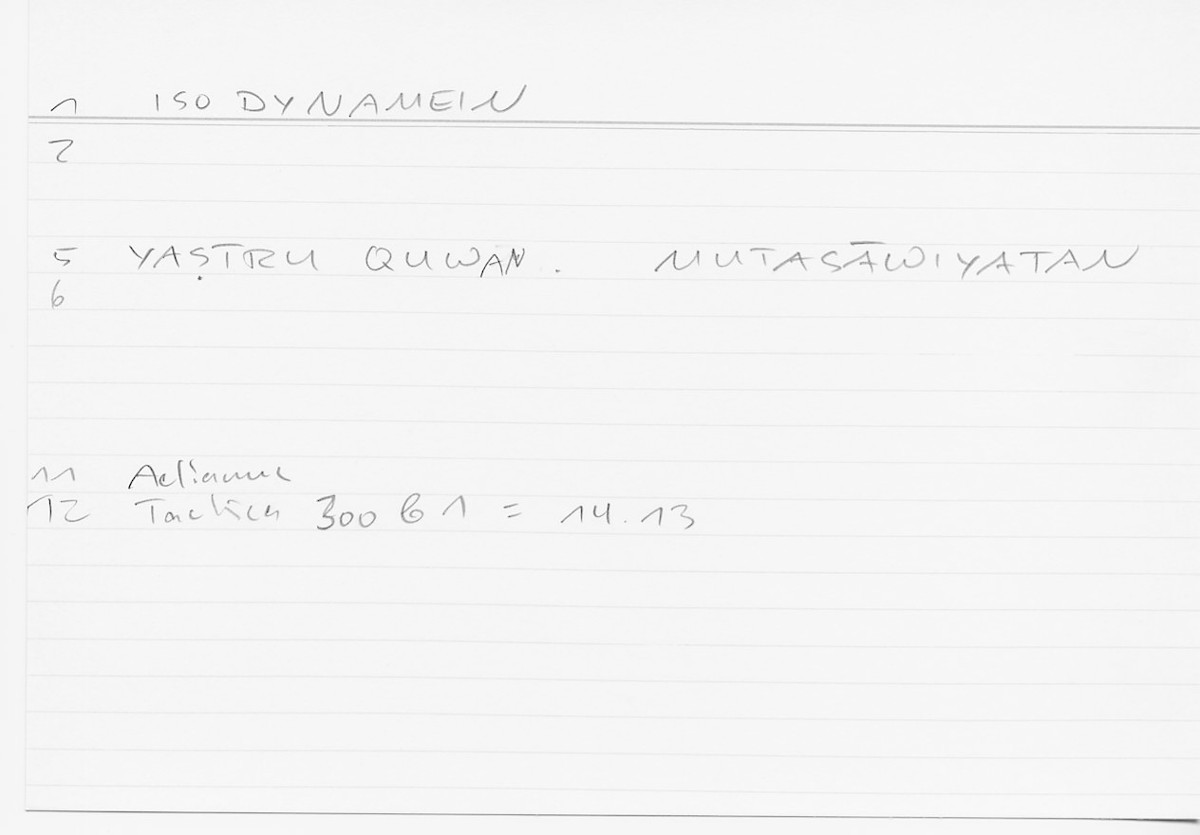 1 ISO DYNAMEIN
2
5 YAṢTRU QUWAN. MUTASĀWIYATAN
6
11 Aelianus
12 Tactica 300 b 1 = 14.13